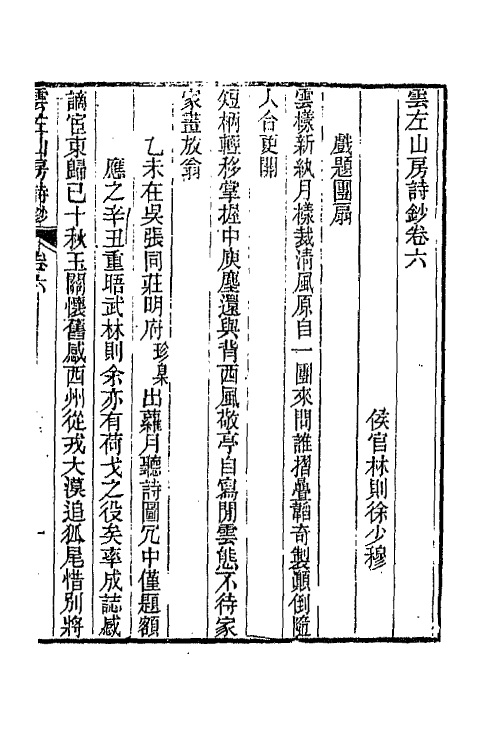 雲左山房詩鈔卷六
侯官林則徐少穆
戲題團扇
雲樣新紈月樣裁清風原自一團來問誰摺疊謅奇製顚倒隨
人合更開
短柄輕移掌握中庾塵還與背西風敬亭自寫閒雲態不待家
家畫放翁
乙未在吳張同莊明府珍臬出蘿月聽詩圖冗中僅題額
應之辛丑重晤武林則余亦有荷戈之役矣率成誌感
謫宦東歸已十秋玉關懷舊感西州從戎大漠追狐尾惜別將
雲左山房詩鈔 卷六 一